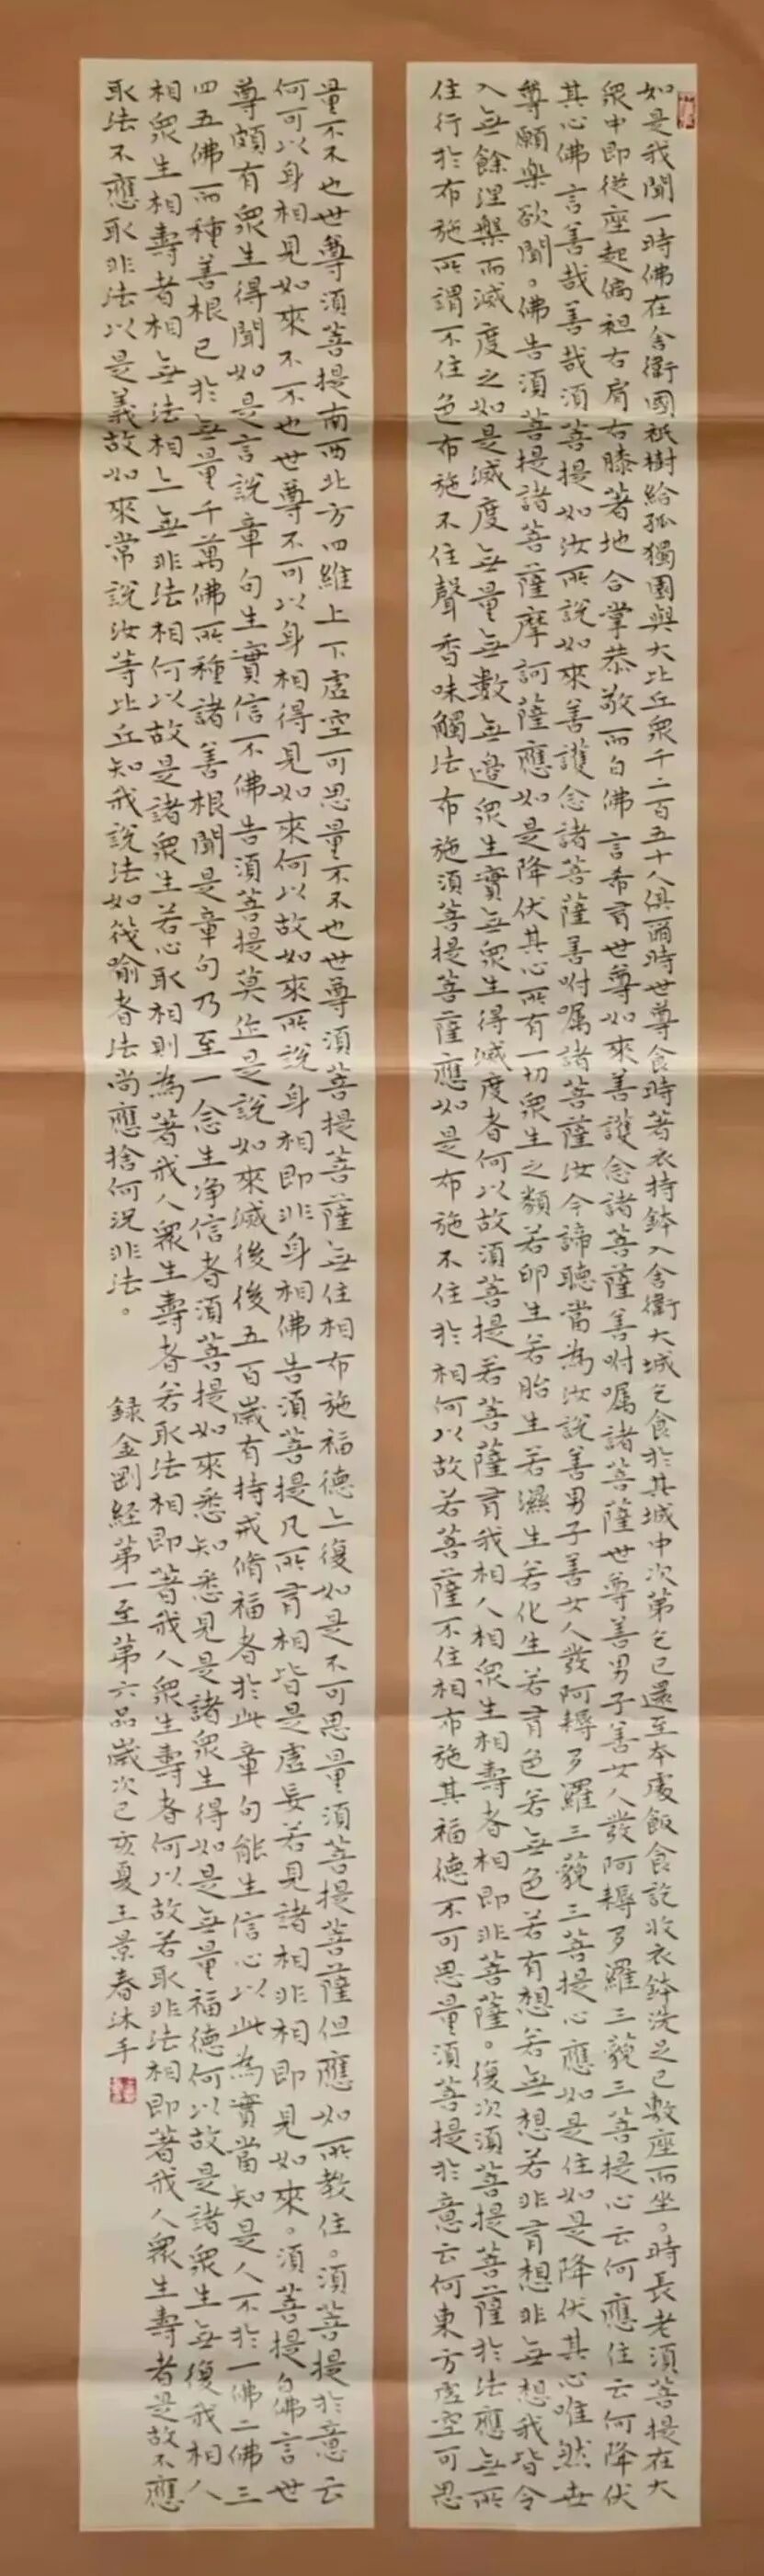 如是我聞一時佛在舍衛國祇樹給孤獨園與大比丘衆千二百五十人俱爾時世尊食時著衣持鉢入舍衛大城乞食於其城中次第乞已還至本處飯食訖收衣鉢洗足已敷座而坐。時長老須菩提在大
衆中即從座起偏袒右肩右膝著地合掌恭敬而白佛言希有世尊如來善護念諸菩薩善咐囑諸菩薩世尊善男子善女人發阿耨多羅三藐三菩提心云何應住云何降伏
其心佛言善哉善哉須菩提如汝所說如來善護念諸菩薩善咐囑諸菩薩汝今諦聽當為汝說善男子善女人發阿耨多羅三藐三菩提心應如是住如是降伏其心唯然世
尊願樂欲聞。佛告須菩提諸菩薩摩訶薩應如是降伏其心所有一切衆生之類若卵生若胎生若濕生若化生若有色若無色若有想若無想若非有想非無想我皆令
入無餘涅槃而滅度之如是滅度無量無數無邊衆生實無衆生得滅度者何以故須菩提若菩薩有我相人相衆生相壽者相即非菩薩。復次須菩提菩薩於法應無所
住行於布施所謂不住色布施不住聲香味觸法布施須菩提菩薩應如是布施不住於相何以故若菩薩不住相布施其福德不可思量須菩提於意云何東方虛空可思
量不不也世尊須菩提南西北方四維上下虛空可思量不不也世尊須菩提菩薩無住相布施福德亦復如是不可思量須菩提菩薩但應如所教住。須菩提於意云
何可以身相見如來不不也世尊不可以身相得見如來何以故如來所說身相即非身相佛告須菩提凡所有相皆是虛妄若見諸相非相即見如來。須菩提白佛言世
尊頗有衆生得聞如是言說章句生實信不佛告須菩提莫作是說如來滅後後五百歲有持戒脩福者於此章句能生信心以此為實當知是人不於一佛二佛三
四五佛而種善根已於無量千萬佛所種諸善根聞是章句乃至一念生淨信者須菩提如來悉知悉見是諸衆生得如是無量福德何以故是諸衆生無復我相人
相衆生相壽者相無法相亦無非法相何以故是諸衆生若心取相則為著我人衆生壽者若取法相即著我人衆生壽者何以故若取非法相即著我人衆生壽者是故不應
取法不應取非法以是義故如來常說汝等比丘知我說法如筏喻者法尚應捨何況非法。 録金剛経第一至第六品歲次己亥夏王景春沐手